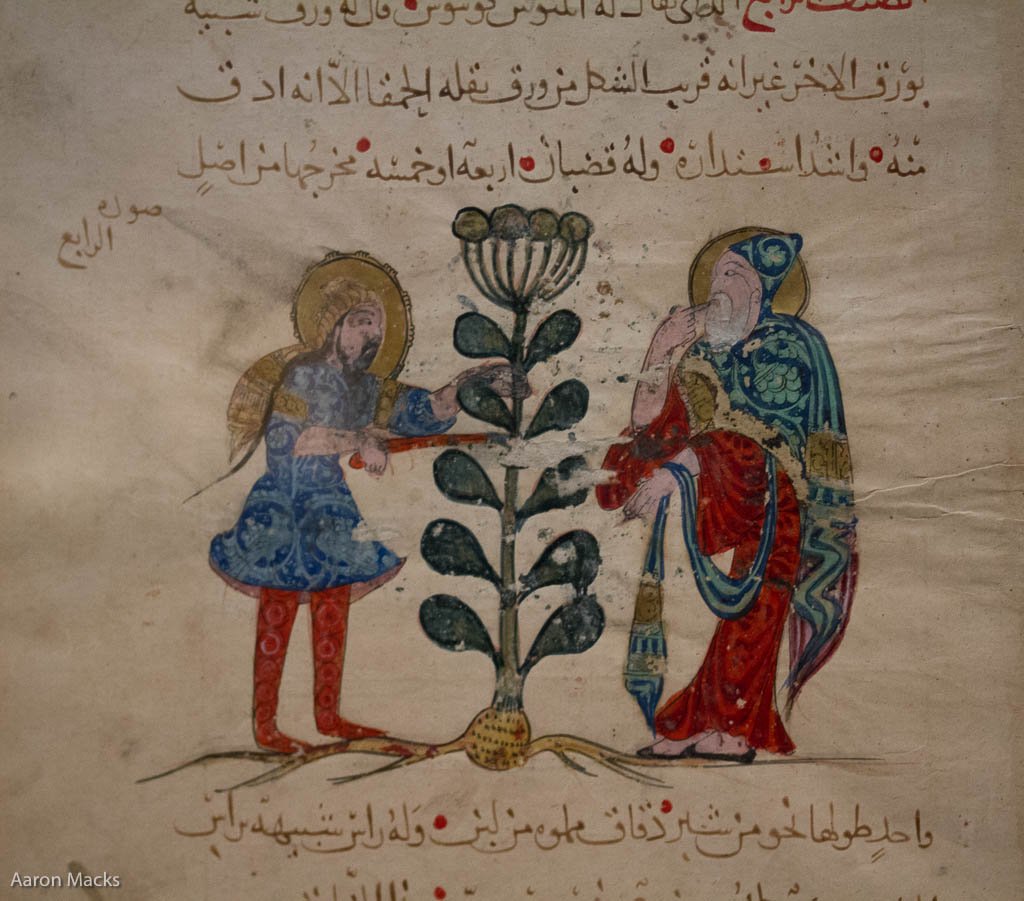 له ورق شبيه
بورق الاخر غير انه قريب الشكل من ورق بقله الحمقا الا انه ادق
منه واشد استداره وله قضبان اربعه او خمسه مخرجها من اصل
صوره
الرابع
واحد طولها نحو من شبر دقاق مملوه من لبن وله راس شبيهه براس
Aaron Macks